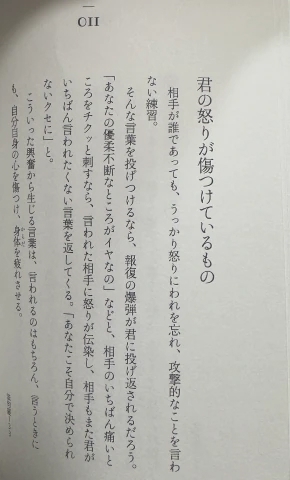 011
君の怒りが傷つけているもの
相手が誰であっても、うっかり怒りにわれを忘れ、攻撃的なことを言わ
ない練習。
そんな言葉を投げつけるなら、報復の爆弾が君に投げ返されるだろう。
「あなたの優柔不断なところがイヤなの」などと、相手のいちばん痛いと
ころをチクッと刺すなら、言われた相手に怒りが伝染し、相手もまた君が
いちばん言われたくない言葉を返してくる。「あなたこそ自分で決められ
ないクセに」と。
こういった興奮から生じる言葉は、言われるのはもちろん、言うときに
も、自分自身の心を傷つけ、身体を疲れさせる。